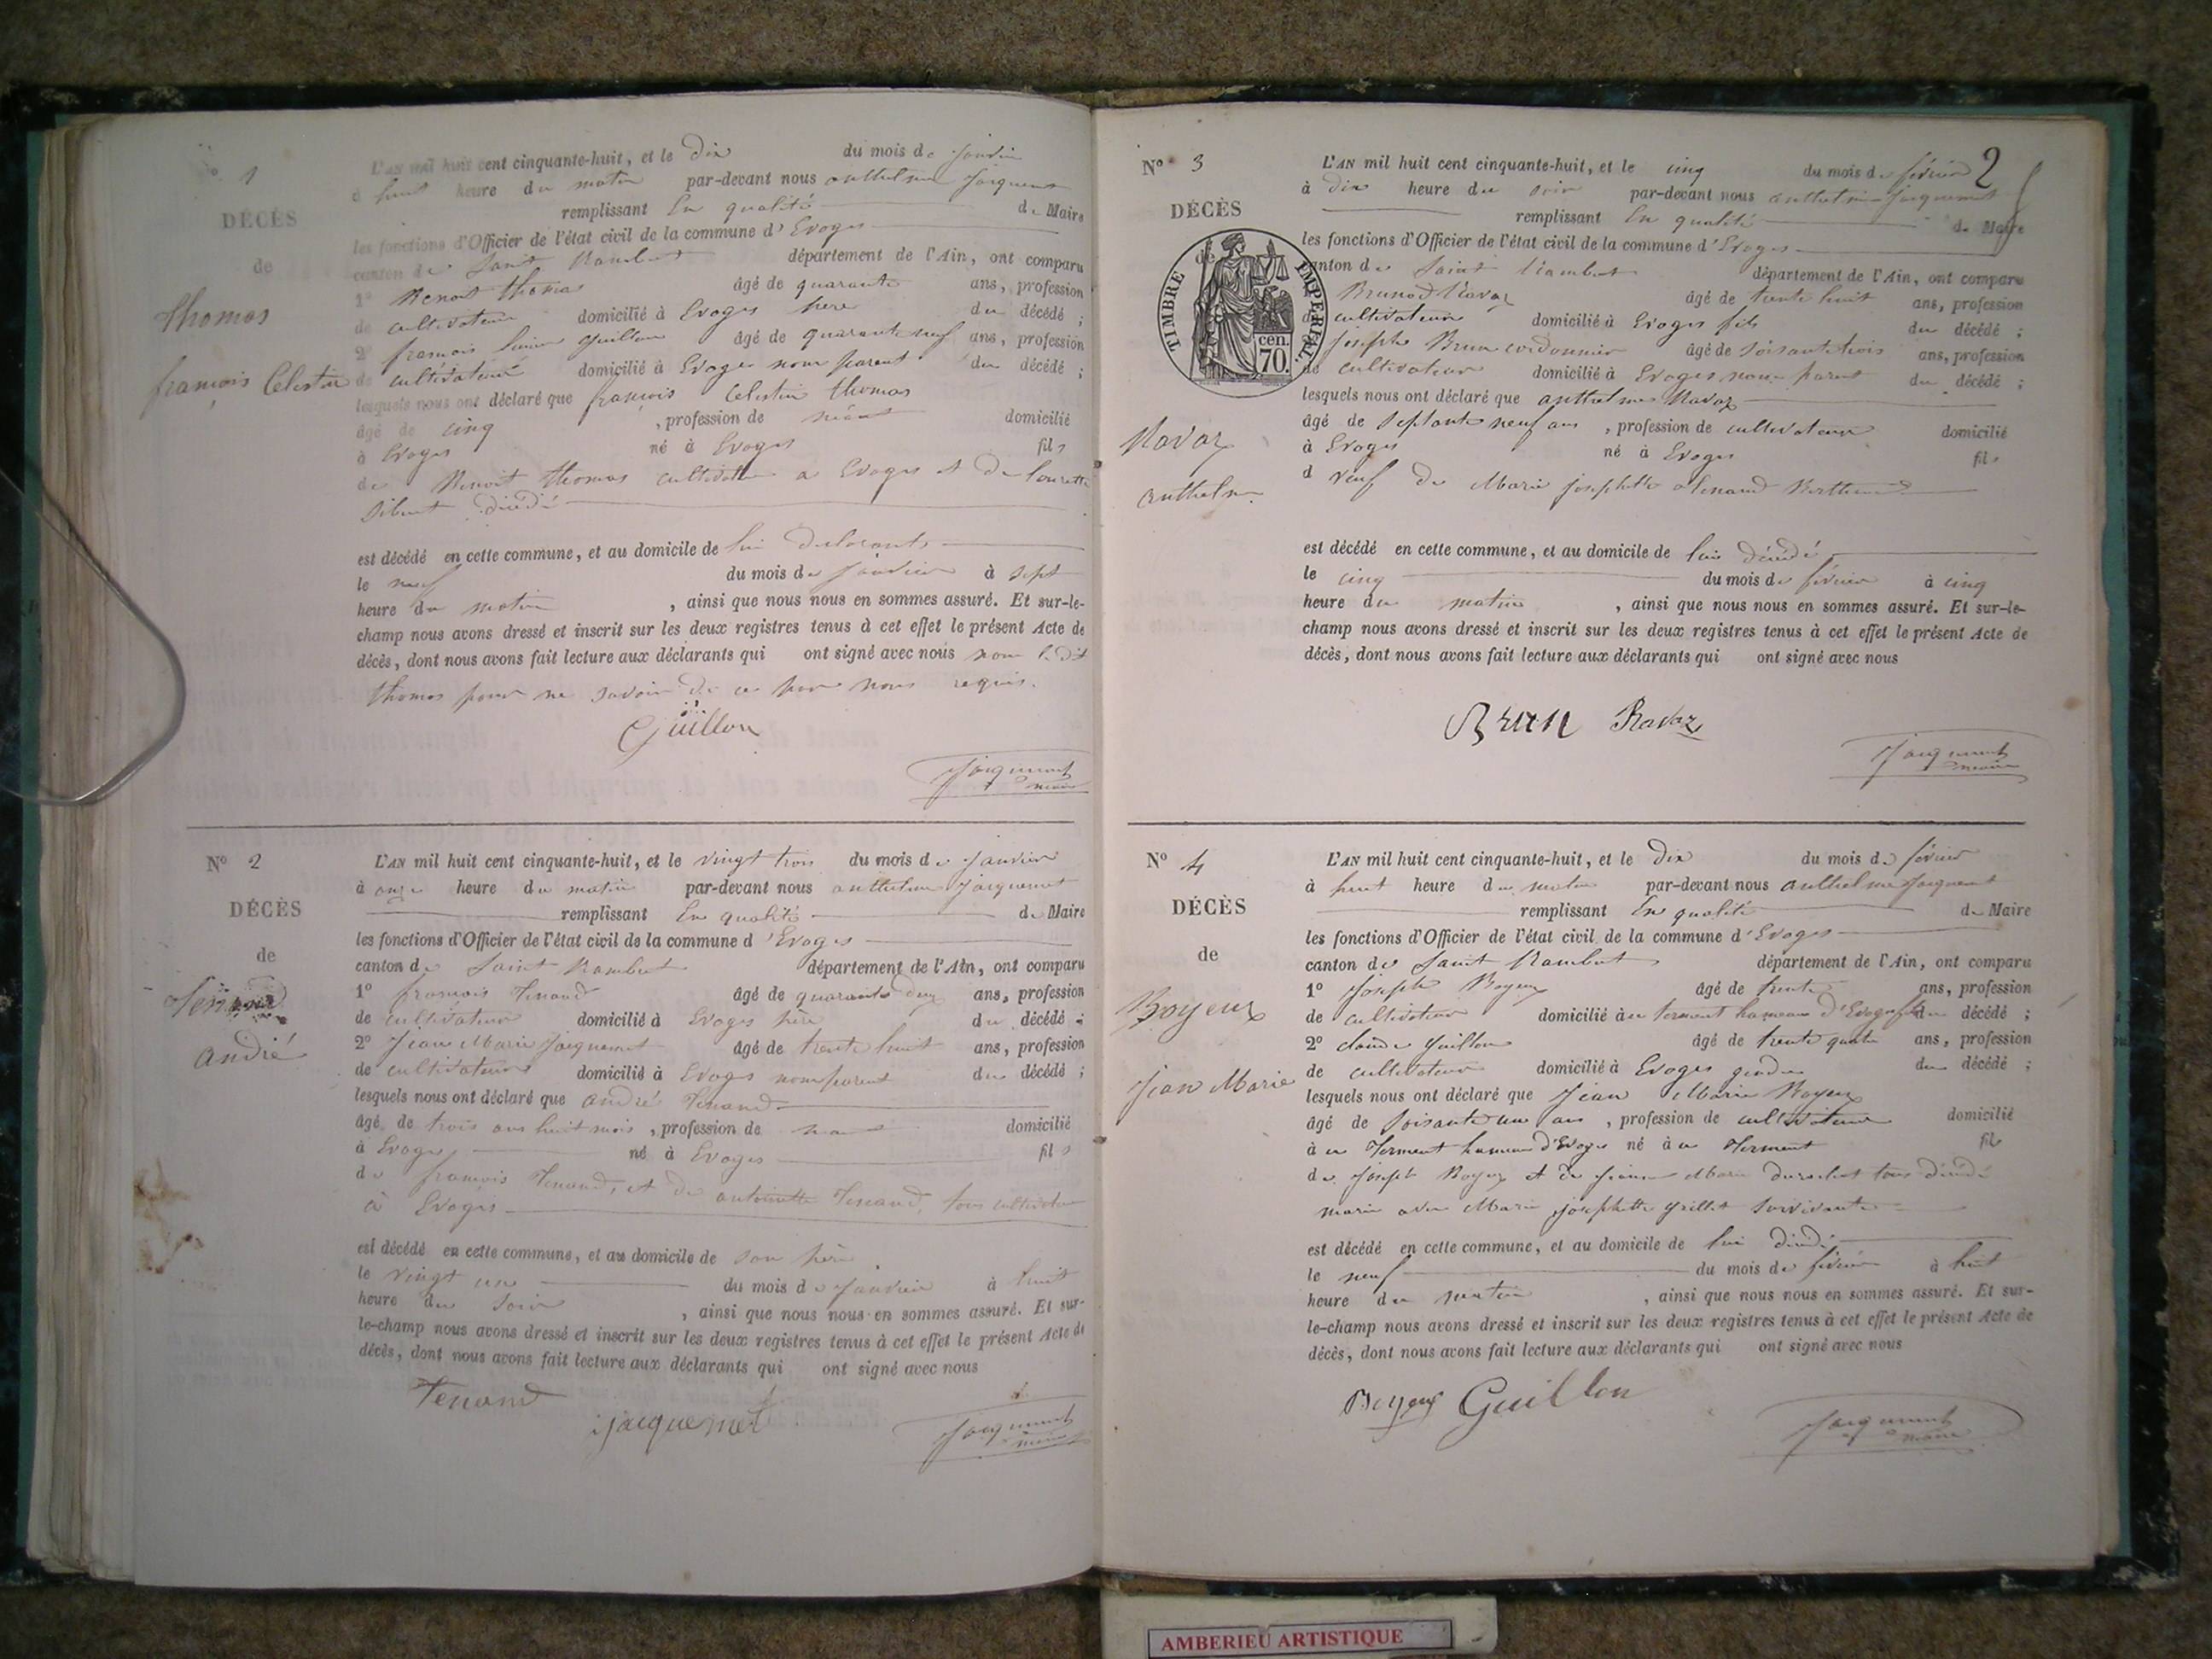 1
DÉCÈS
de
Thomas
françois Celestin
L'AN mil huit cent cinquante-huit, et le dix du mois de janvier
à huit heure du matin par-devant nous anthelme Jacquemet
remplissant En qualité de Maire
les fonctions d'Officier de l'état civil de la commune d'Evoges
canton de Saint Rambert département de l'Ain, ont comparu
1° Benoit thomas âgé de quarante ans, profession
de cultivateur domicilié à Evoges père du décédé ;
2° françois Guillon âgé de quarante neuf ans, profession
de cultivateur domicilié à Evoges non parent du décédé ;
lesquels nous ont déclaré que françois Celestin thomas
âgé de cinq , profession de néant domicilié
à Evoges né à Evoges fils
de Benoit thomas cultivateur a Evoges et De
décédé
est décédé en cette commune, et au domicile de
le neuf du mois de janvier à sept
heure du matin , ainsi que nous nous en sommes assuré. Et sur-le-
champ nous avons dressé et inscrit sur les deux registres tenus à cet effet le présent Acte de
décès, dont nous avons fait lecture aux déclarants qui ont signé avec nous non le dit
thomas pour ne savoir De ce par nous requis.
Guillon
Jacquemet
maire
N° 2
DÉCÈS
de
Tenand
andré
L'AN mil huit cent cinquante-huit, et le vingt trois du mois de janvier
à onze heure du matin par-devant nous anthelme Jacquemet
remplissant En qualité de Maire
les fonctions d'Officier de l'état civil de la commune d'Evoges
canton de Saint Rambert département de l'Ain, ont comparu
1° françois Tenand âgé de quarante deux ans, profession
de cultivateur domicilié à Evoges père du décédé ;
2° Jean Marie Jacquemet âgé de trente huit ans, profession
de cultivateur domicilié à Evoges non parent du décédé ;
lesquels nous ont déclaré que andré Tenand
âgé de trois ans huit mois , profession de domicilié
à Evoges né à Evoges fils
de françois Tenand, et de antoinette Tenand, tous cultivateur
à Evoges
est décédé en cette commune, et au domicile de son père
le vingt un du mois de janvier à huit
heure du soir , ainsi que nous nous en sommes assuré. Et sur-
le-champ nous avons dressé et inscrit sur les deux registres tenus à cet effet le présent Acte de
décès, dont nous avons fait lecture aux déclarants qui ont signé avec nous
Tenand
jacquemet
Jacquemet
maire
2
N° 3
DÉCÈS
de
TIMBRE IMPÉRIAL
70 cen.
Ravaz
anthelme
L'AN mil huit cent cinquante-huit, et le cinq du mois de février
à dix heure du soir par-devant nous anthelme Jacquemet
remplissant En qualité de Maire
les fonctions d'Officier de l'état civil de la commune d'Evoges
canton de Saint Rambert département de l'Ain, ont comparu
Ravaz âgé de trente huit ans, profession
de cultivateur domicilié à Evoges fils du décédé ;
Joseph Brun cordonnier âgé de soisante trois ans, profession
de cultivateur domicilié à Evoges non parent du décédé ;
lesquels nous ont déclaré que anthelme Ravaz
âgé de septante neuf ans , profession de cultivateur domicilié
à Evoges né à Evoges fils
d veuf de Marie josephette Tenand
est décédé en cette commune, et au domicile de lui décédé
le cinq du mois de février à cinq
heure du matin , ainsi que nous nous en sommes assuré. Et sur-le-
champ nous avons dressé et inscrit sur les deux registres tenus à cet effet le présent Acte de
décès, dont nous avons fait lecture aux déclarants qui ont signé avec nous
Brun Ravaz
Jacquemet
maire
N° 4
DÉCÈS
de
Boyeux
Jean Marie
L'AN mil huit cent cinquante-huit, et le dix du mois de février
à huit heure du matin par-devant nous anthelme Jacquemet
remplissant En qualité de Maire
les fonctions d'Officier de l'état civil de la commune d'Evoges
canton de Saint Rambert département de l'Ain, ont comparu
1° Joseph Boyeux âgé de trente ans, profession
de cultivateur domicilié à hameau d'Evoges fils du décédé ;
2° claude Guillon âgé de trente quatre ans, profession
de cultivateur domicilié à Evoges gendre du décédé ;
lesquels nous ont déclaré que Jean Marie Boyeux
âgé de soisante un ans , profession de cultivateur domicilié
à hameau d'Evoges né à fils
de Joseph Boyeux et de Marie tous décédé
marié avec Marie josephette Grillet survivante
est décédé en cette commune, et au domicile de lui décédé
le neuf du mois de février à huit
heure du matin , ainsi que nous nous en sommes assuré. Et sur-
le-champ nous avons dressé et inscrit sur les deux registres tenus à cet effet le présent Acte de
décès, dont nous avons fait lecture aux déclarants qui ont signé avec nous
Boyeux Guillon
Jacquemet
maire
AMBERIEU ARTISTIQUE